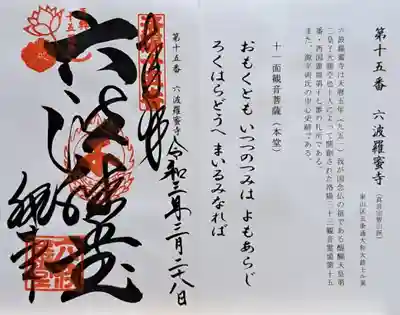 第十五番 六波羅蜜寺
(真言宗智山派)
東山区五条通大和大路上ル東
六波羅蜜寺は天暦五年(九五一)我が国念仏の祖である醍醐天皇第
二皇子光勝空也上人によって開創された洛陽三十三観音霊場第十五
番・西国霊場第十七番の札所である。
また、源平両氏の中心史跡である。
十一面観音菩薩(本堂)
おもくとも いつのつみは よもあらじ
ろくはらどうへ まいるみなれば
第十五番 六波羅蜜寺
令和三年三月二十八日
奉拝
六波羅堂